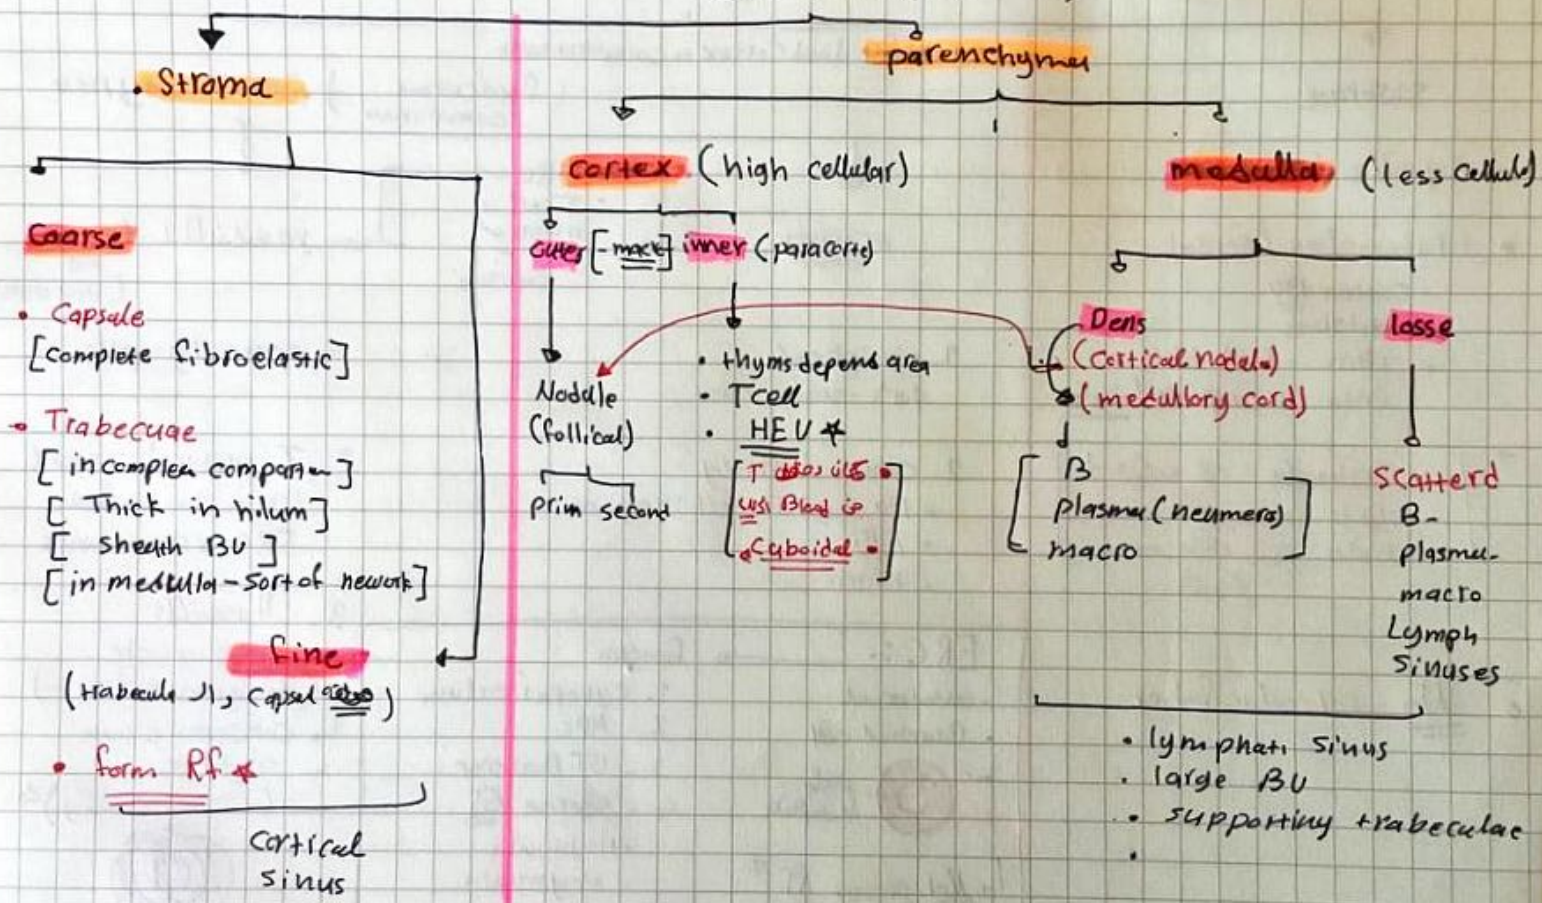 Stroma
Coarse
• Capsule
[complete fibroelastic]
• Trabecuae
[incomplea compart]
[Thick in hilum]
[sheath BV]
[in medulla - sort of nework]
fine
(trabecula , capsul)
• form Rf ★
cortical
sinus
parenchyma
cortex (high cellular)
outer [-mack] inner (paracorte)
Nodule
(follical)
prim second
• thyms depend area
• T cell
• HEV ★
[T
Blood
• Cuboidal •]
medulla (less cellula)
Dens
(cortical nodela)
(medullory cord)
B
plasma (neumero)
macro
losse
scatterd
B-
plasma-
macro
Lymph
sinuses
• lymphati sinus
• large BV
• supporting trabeculae
•